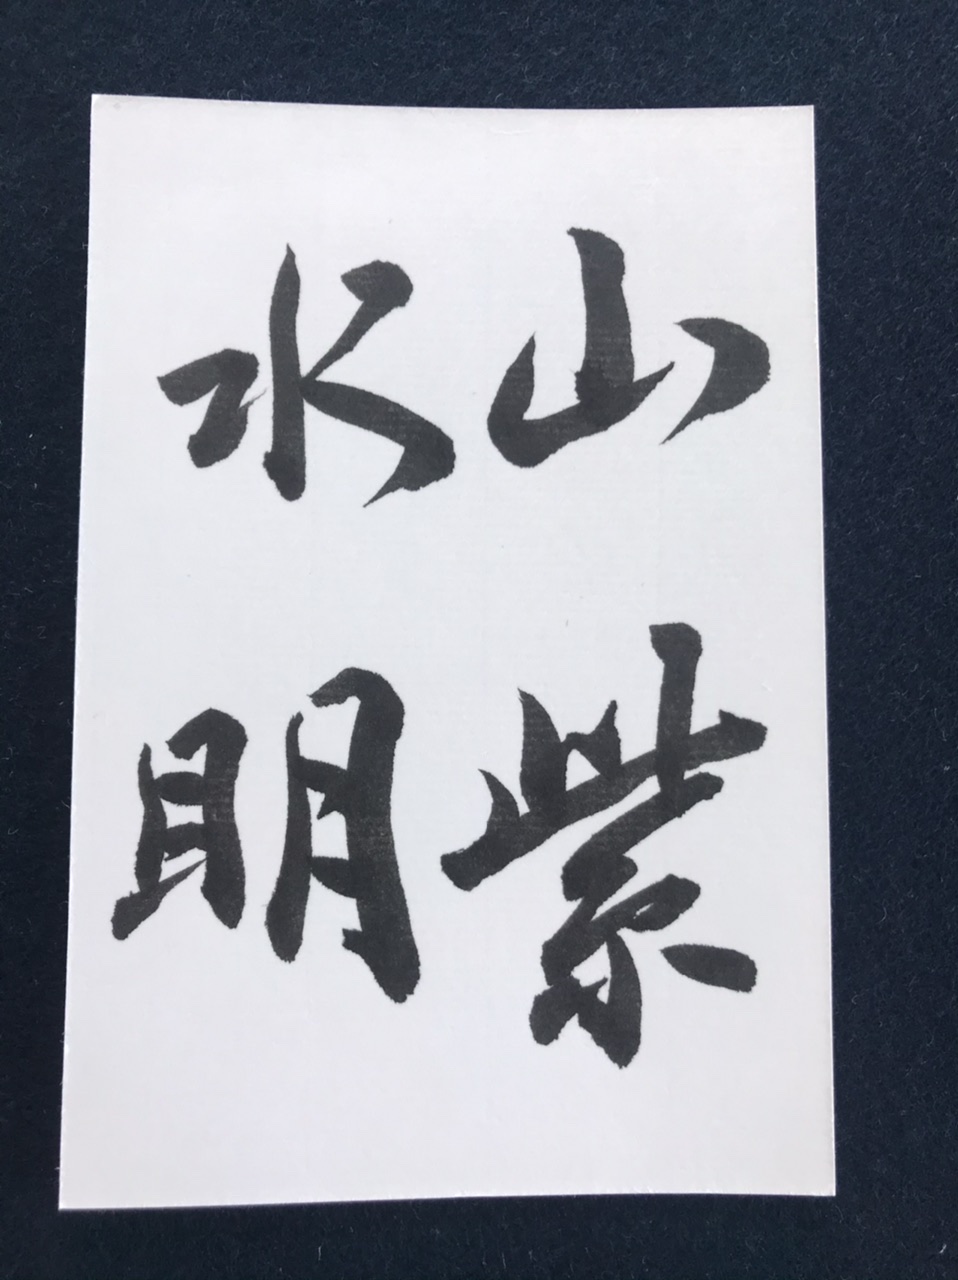 山紫
水明